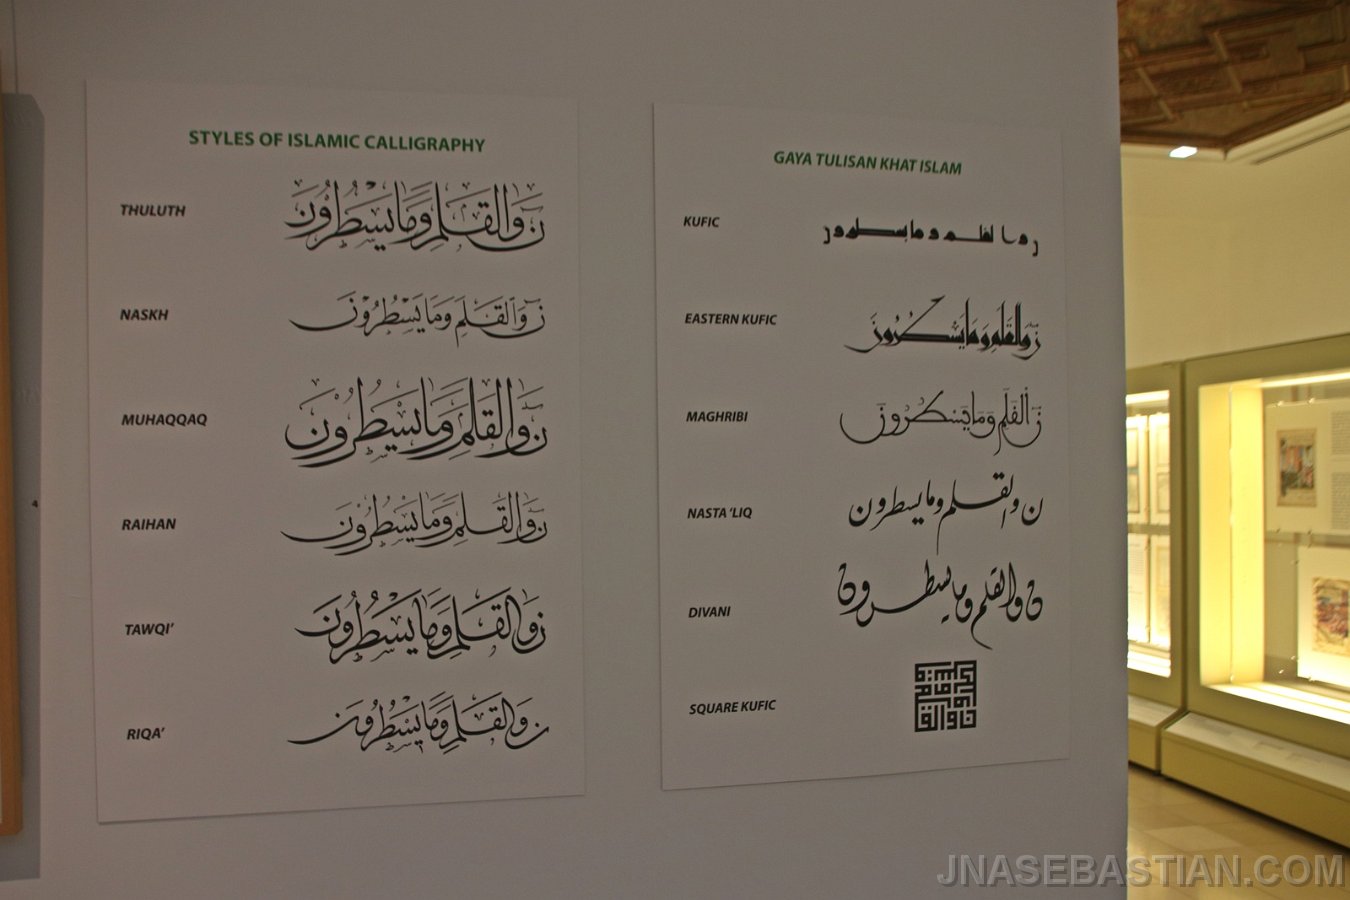 STYLES OF ISLAMIC CALLIGRAPHY
THULUTH ن والقلم وما يسطرون
NASKH ن والقلم وما يسطرون
MUHAQQAQ ن والقلم وما يسطرون
RAIHAN ن والقلم وما يسطرون
TAWQI' ن والقلم وما يسطرون
RIQA' ن والقلم وما يسطرون
GAYA TULISAN KHAT ISLAM
KUFIC ن والقلم وما يسطرون
EASTERN KUFIC ن والقلم وما يسطرون
MAGHRIBI ن والقلم وما يسطرون
NASTA 'LIQ ن والقلم وما يسطرون
DIVANI ن والقلم وما يسطرون
SQUARE KUFIC ن والقلم وما يسطرون
JNASEBASTIAN.COM